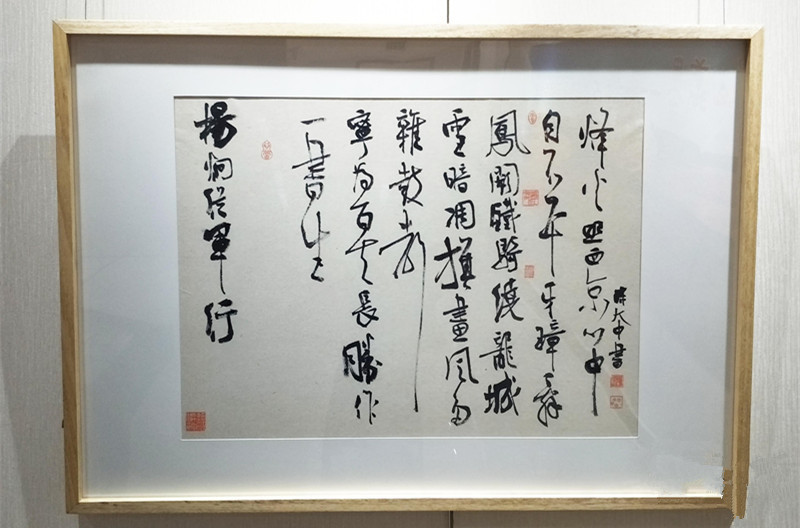 烽火照西京心中
自不平牙璋辭
鳳闕鐵騎繞龍城
雪暗凋旗畫風多
雜鼓聲
寧為百夫長勝作
一書生
楊炯從軍行
陳大中書